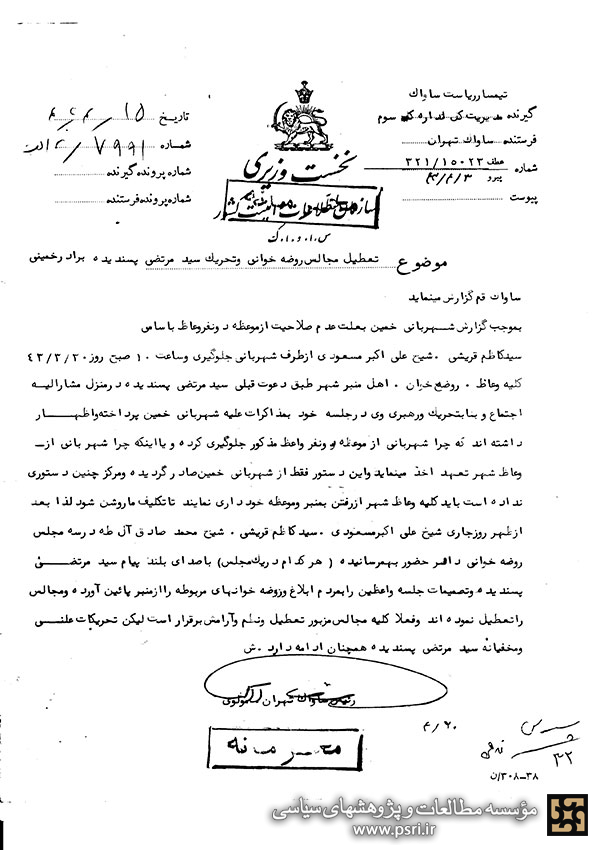 تیمسار ریاست ساواک
گیرنده مدیریت کل اداره کل سوم
فرستنده ساواک تهران
شماره عطف ۳۲۱/۱۵۰۲۳
پیرو ۴۳/۳/۳
پیوست
نخست وزیری
سازمان اطلاعات و امنیت کشور
س.ا.و.ا.ک
تاریخ
شماره ۷۹۹۱
شماره پرونده گیرنده
شماره پرونده فرستنده
موضوع تعطیل مجالس روضه خوانی و تحریک سید مرتضی پسندیده برادر خمینی
ساواک قم گزارش مینماید
بموجب گزارش شهربانی خمین بعلت عدم صلاحیت از موعظه دو نفر وعاظ باسامی
سید کاظم قریشی . شیخ علی اکبر مسعودی از طرف شهربانی جلوگیری و ساعت ۱۰ صبح روز ۴۳/۳/۲۰
کلیه وعاظ . روضه خوان . اهل منبر شهر طبق دعوت قبلی سید مرتضی پسندیده در منزل مشارالیه
اجتماع و بنا بتحریک و رهبری وی در جلسه خود بمذاکرات علیه شهربانی خمین پرداخته و اظهار
داشته اند که چرا شهربانی از موعظه دو نفر واعظ مذکور جلوگیری کرده و یا اینکه چرا شهربانی از
وعاظ شهر تعهد اخذ مینماید و این دستور فقط از شهربانی خمین صادر گردیده و مرکز چنین دستوری
نداده است باید کلیه وعاظ شهر از رفتن بمنبر و موعظه خودداری نمایند تا تکلیف ما روشن شود لذا بعد
از ظهر روز جاری شیخ علی اکبر مسعودی . سید کاظم قریشی . شیخ محمد صادق آل طه در سه مجلس
روضه خوانی دائر حضور بهمرسانیده ( هر کدام در یک مجلس) با صدای بلند پیام سید مرتضی
پسندیده و تصمیمات جلسه واعظین را بمردم ابلاغ و روضه خوانهای مربوطه را از منبر پائین آورده و مجالس
را تعطیل نموده اند و فعلا کلیه مجالس مزبور تعطیل و نظم و آرامش برقرار است لیکن تحریکات علنی
و مخفیانه سید مرتضی پسندیده همچنان ادامه دارد . ش
رئیس ساواک تهران مولوی
محرمانه
۳۸-۳۰۸/ن
مؤسسه مطالعات و پژوهشهای سیاسی
www.psri.ir